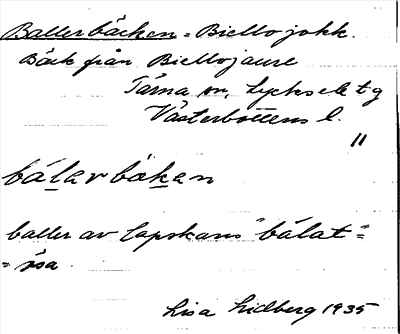 Ballerbäcken = Biellojokk.
Bäck från Biellojaure
Tärna sn, Lycksele tg
Västerbottens l.
11
bálavbäkan
baller av lapskans "bálat"=
= ösa
Lisa Lidberg 1935